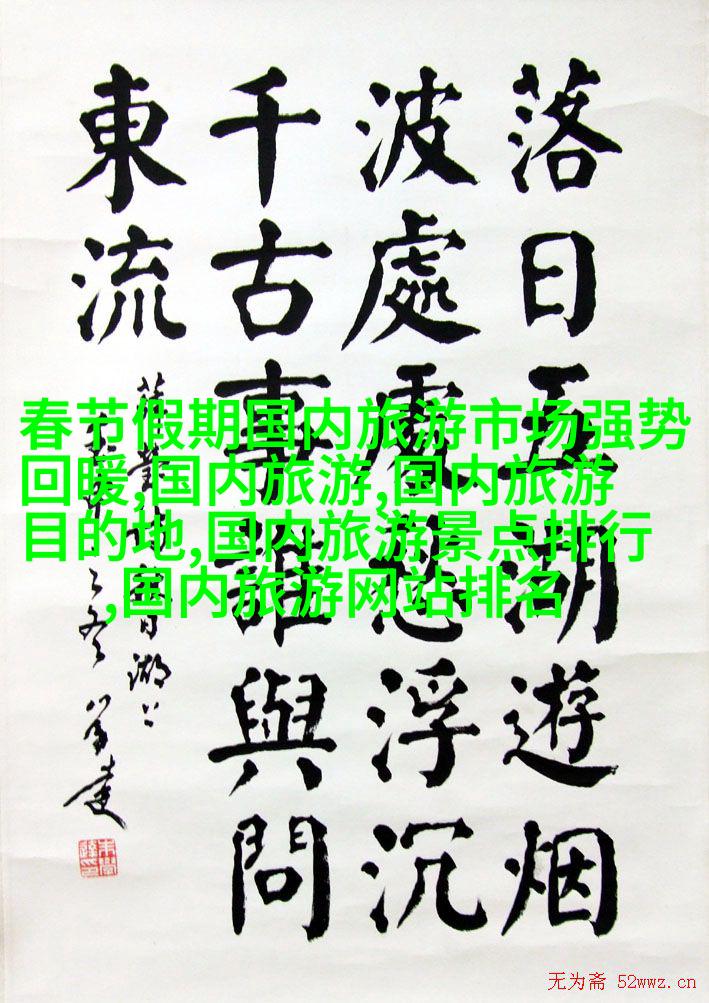 落日五湖遊烟
波處處愁浮沉
千古事誰與問
東流
薛瑩詩秋日湖上
春节假期国内旅游市场强势
回暖,国内旅游,国内旅游
目的地,国内旅游景点排行
,国内旅游网站排名
无为斋 52wwz.cn